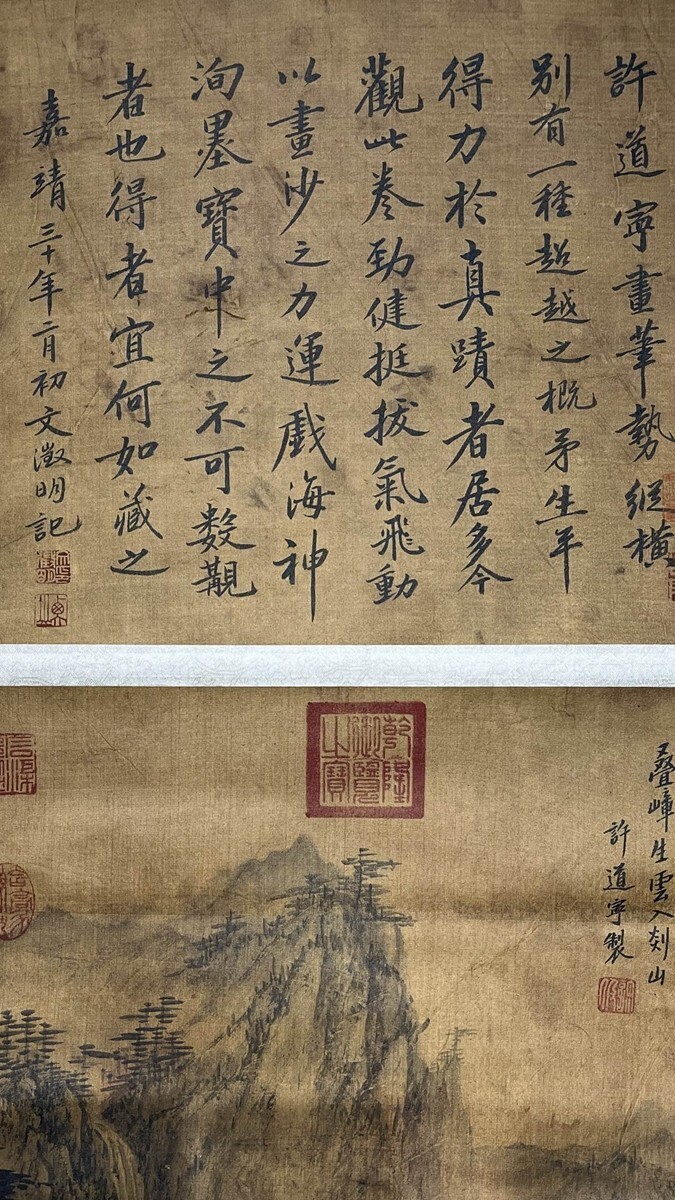 許道寧畫筆勢縱橫
別有一種超越之概予生平
得力於真蹟者居多今
觀此卷勁健挺拔氣飛動
以畫沙之力運戲海神
洵墨寶中之不可數覯
者也得者宜何如藏之
嘉靖三十年二月初文徵明記
乾隆御覽之寶
叠嶂生雲入剡山
許道寧製